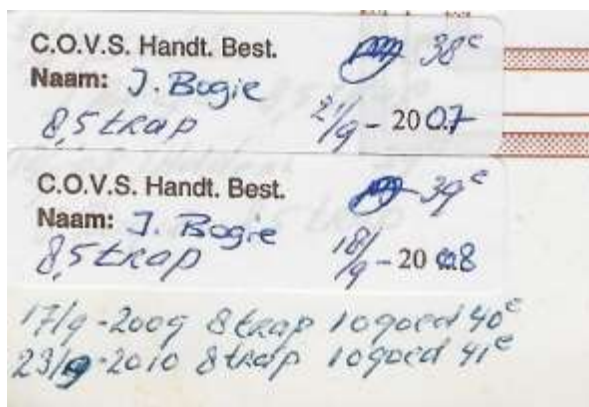 C.O.V.S. Handt. Best. 38e
Naam: J. Bogie
8,5 trap 21/9 - 2007
C.O.V.S. Handt. Best. 39e
Naam: J. Bogie
8,5 trap 18/9 - 2008
17/9 - 2009 8 trap 10 goed 40e
23/9 - 2010 8 trap 10 goed 41e